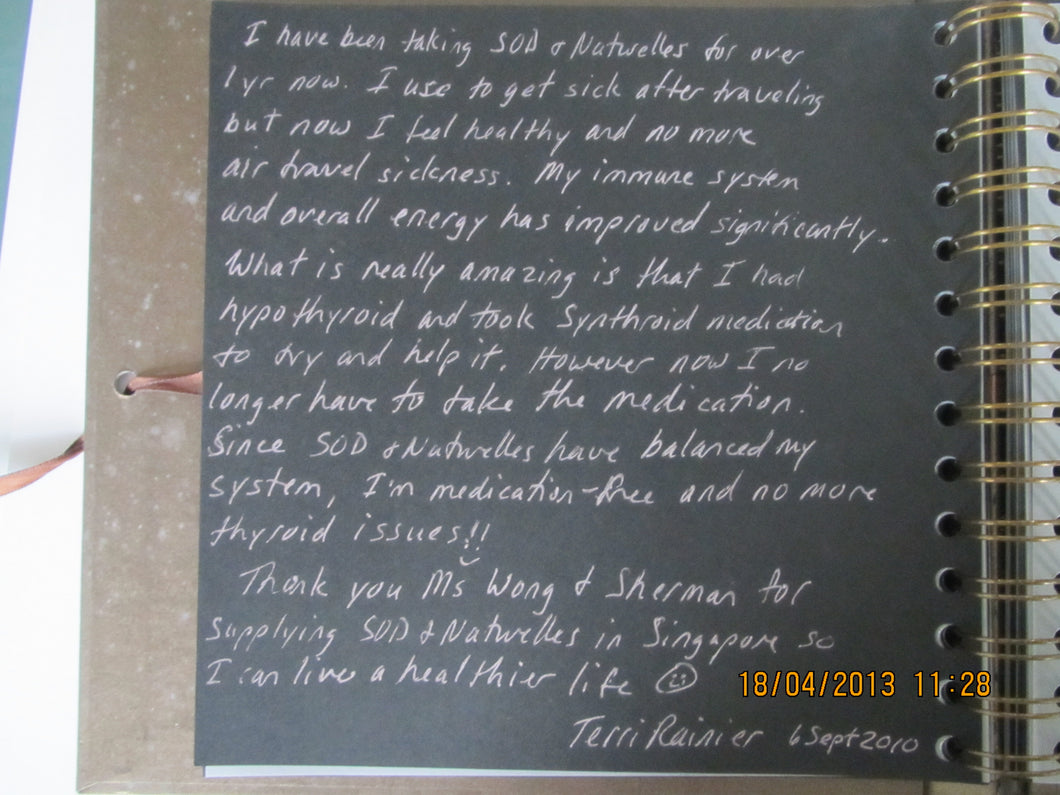 I have been taking SOD & Naturelles for over
1 yr now. I use to get sick after traveling
but now I feel healthy and no more
air travel sickness. My immune system
and overall energy has improved significantly.
What is really amazing is that I had
hypothyroid and took Synthroid medication
to try and help it. However now I no
longer have to take the medication.
Since SOD & Naturelles have balanced my
system, I'm medication-free and no more
thyroid issues!!
Thank you Ms Wong & Sherman for
supplying SOD & Naturelles in Singapore so
I can live a healthier life
18/04/2013 11:28
Terri Rainier 6 Sept 2010